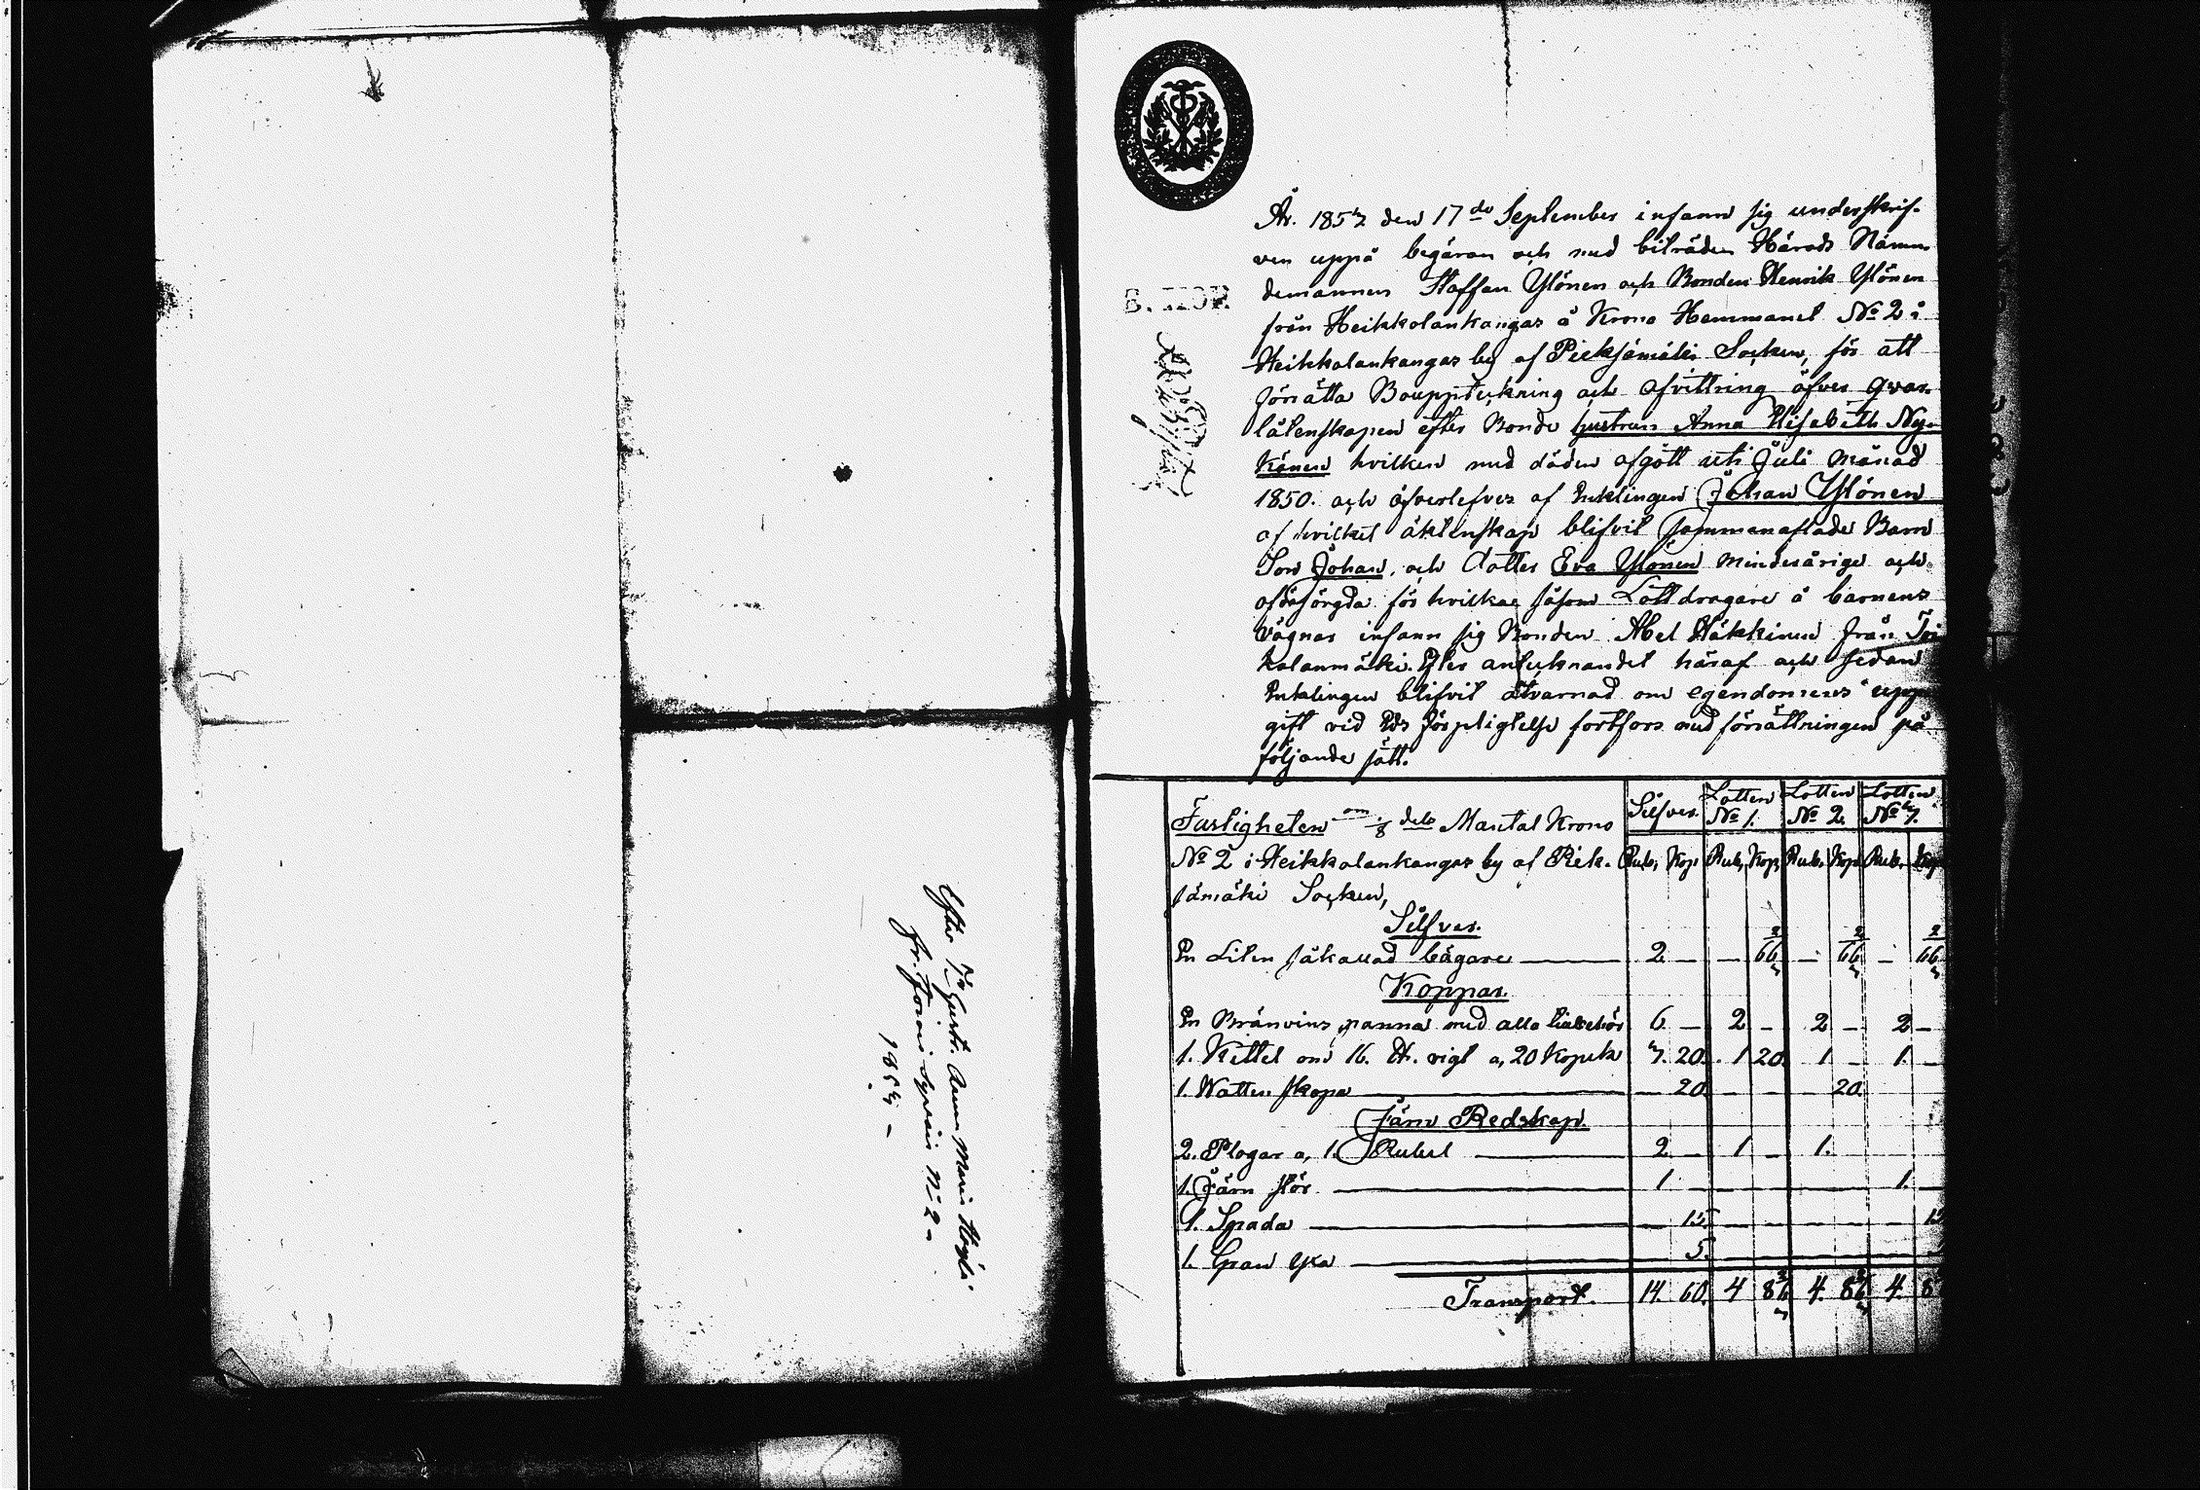 Efter Fr Gustr. Anna Maria
fr.
1854 –
År. 1853 den 17de September infann sig underskrif-
ven uppå begäran och med biträde Härads Nämn
demannen Staffan Ylönen och Bonden Henrik Ylönen
från Heikkolankangas å Krono Hemmanet No 2 i
Heikkolankangas by af Pieksämäki Socken, för att
förrätta Bouppteckning och afvittring öfver qvar-
låtenskapen efter Bonde hustrun Anna Elisabeth Ny-
känen hvilken med döden afgått uti Juli månad
1850. och öfverlefves af Enklingen Johan Ylönen
af hvilket äktenskap blifvit sammanaflade Barn
Son Johan, och dotter Eva Ylönen minderårige och
oförsörgda för hvilka såsom Lottdragare å barnens
vägnar infann sig Bonden Abel Häkkinen från Toi
kolanmäki. Efter antecknandet häraf och sedan
Enklingen blifvit åtvarnad om egendomens upp
gift vid Eds förpligtelse fortfors med förrättningen på
följande sätt.
Silfver. Lotten No 1. Lotten No 2. Lotten No 3.
Fastigheten om 1/8 dels Mantal Krono
No 2 i Heikkolankangas by af Piek- Rub. Kop. Rub. Kop. Rub. Kop. Rub. Kop
sämäki Socken,
Silfver.
En Liten såkallad bägare 2 – – 66 2/3 – 66 2/3 – 66 2/3
Koppar.
En Bränvins panna med alla tillbehör 6 – 2 – 2 – 2 –
1. Kittel om 16. ℔. vigt a, 20 Kopek 3. 20. 1 20. 1 – 1. –
1. Watten skopa – 20. – – – 20.
Järn Redskap.
2. Plogar a, 1. Rubel 2. – 1 – 1.
1. Järn stör 1 – – – – – 1. –
1. Spada – 15. – – – – – 15
1. Gran yxa 5.
Transport. 14. 60. 4 86 2/3 4. 86 2/3 4. 8